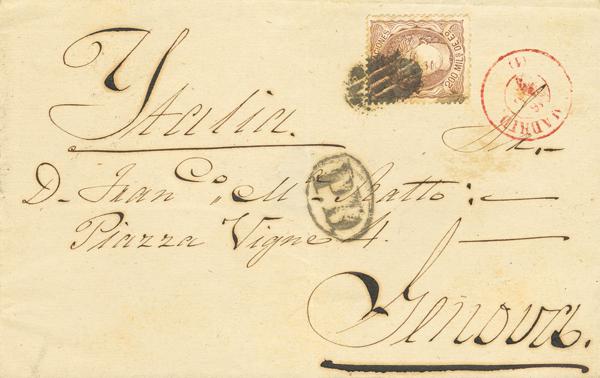 Italia.
Sr.
D. Franco. Ma. Gatto:
Piazza Vigne 4.
Genova.
200 MILS DE Eo
MADRID
(1)
PD